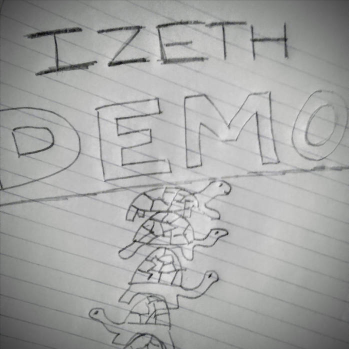 IZETH
DEMO